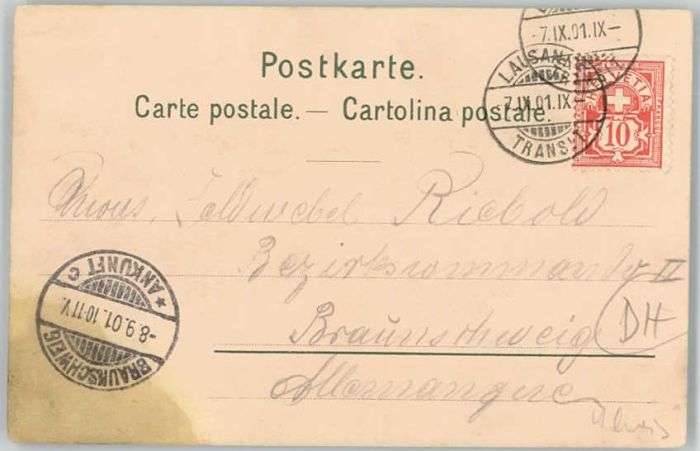 -7.IX.01.IX-
Postkarte.
LAUSANNE
-7.IX.01.IX-
TRANSIT
HELVETIA
10
Carte postale. — Cartolina postale.
Feldwebel Riebold
Bezirkscommando II
Braunschweig
DH
Allemangne
*ANKUNFT C
-8.9.01.10-11V.
BRAUNSCHWEIG